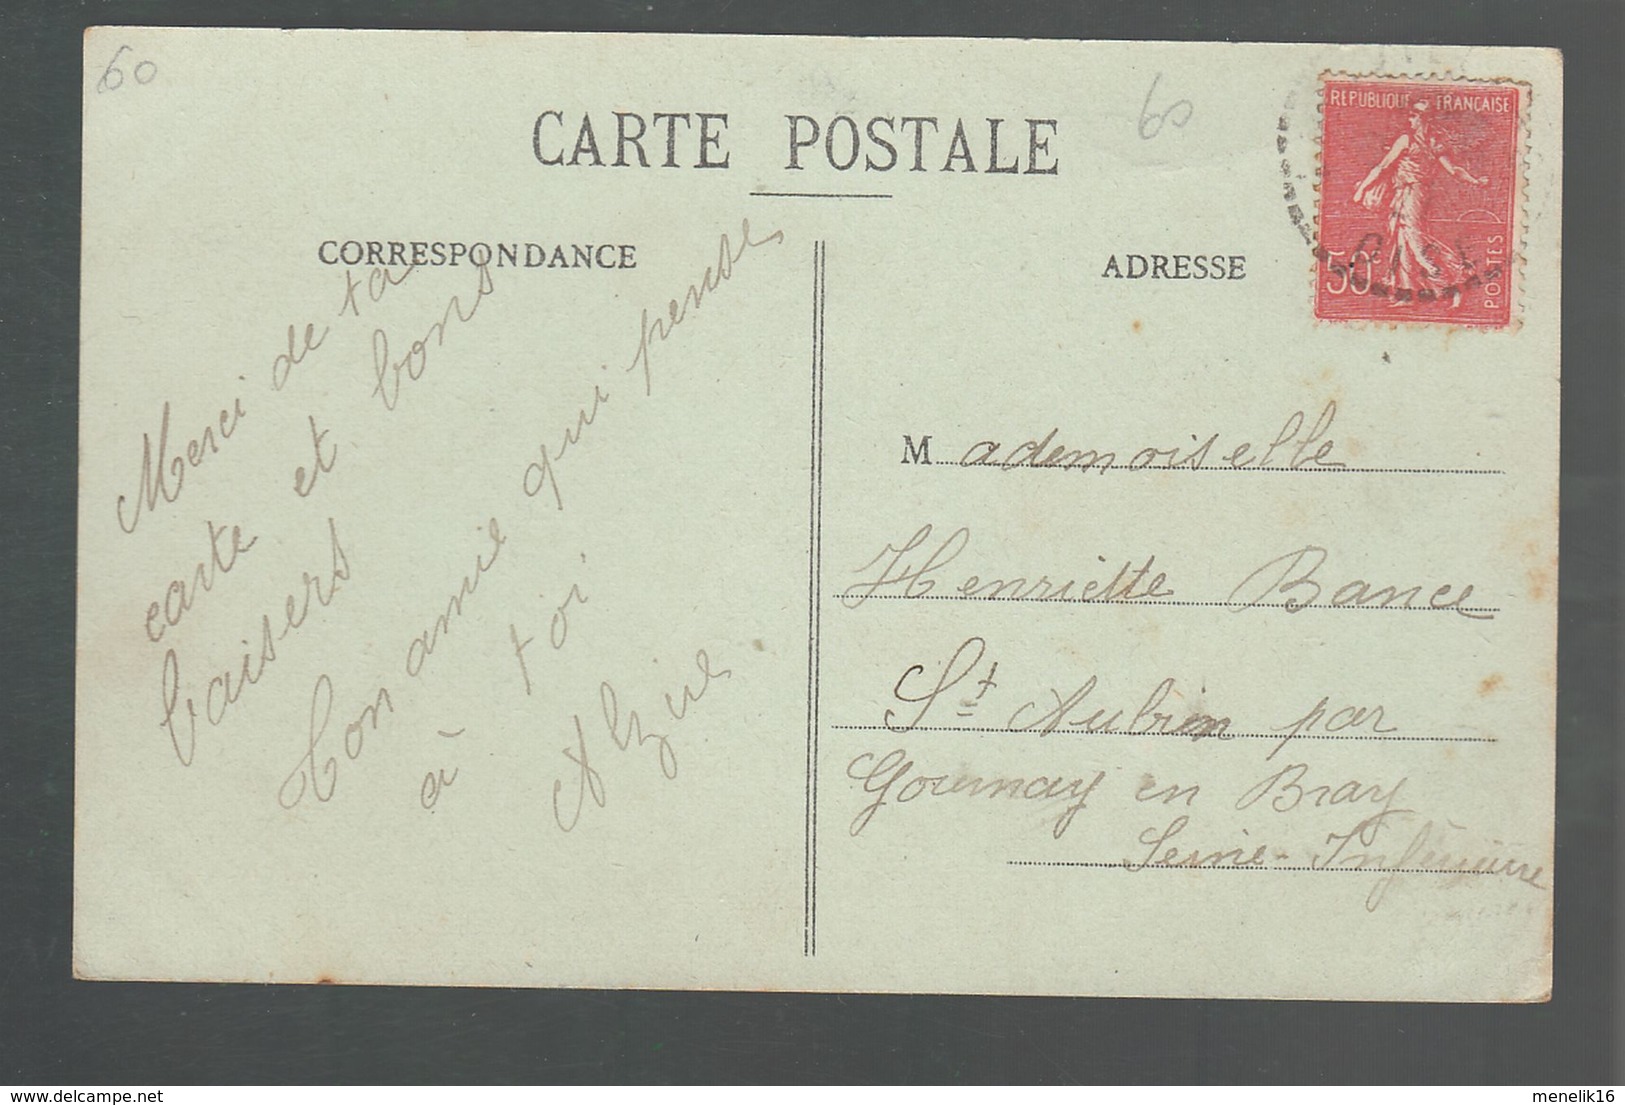 60
CARTE POSTALE
60
REPUBLIQUE FRANCAISE
50
POSTES
OISE
CORRESPONDANCE
Merci de ta
carte et bons
baisers
Ton amie qui pense
à toi
ADRESSE
Mademoiselle
Henriette Bance
St Aubin par
Gournay en Bray
Seine-Inférieure
www.delcampe.net
menelik16